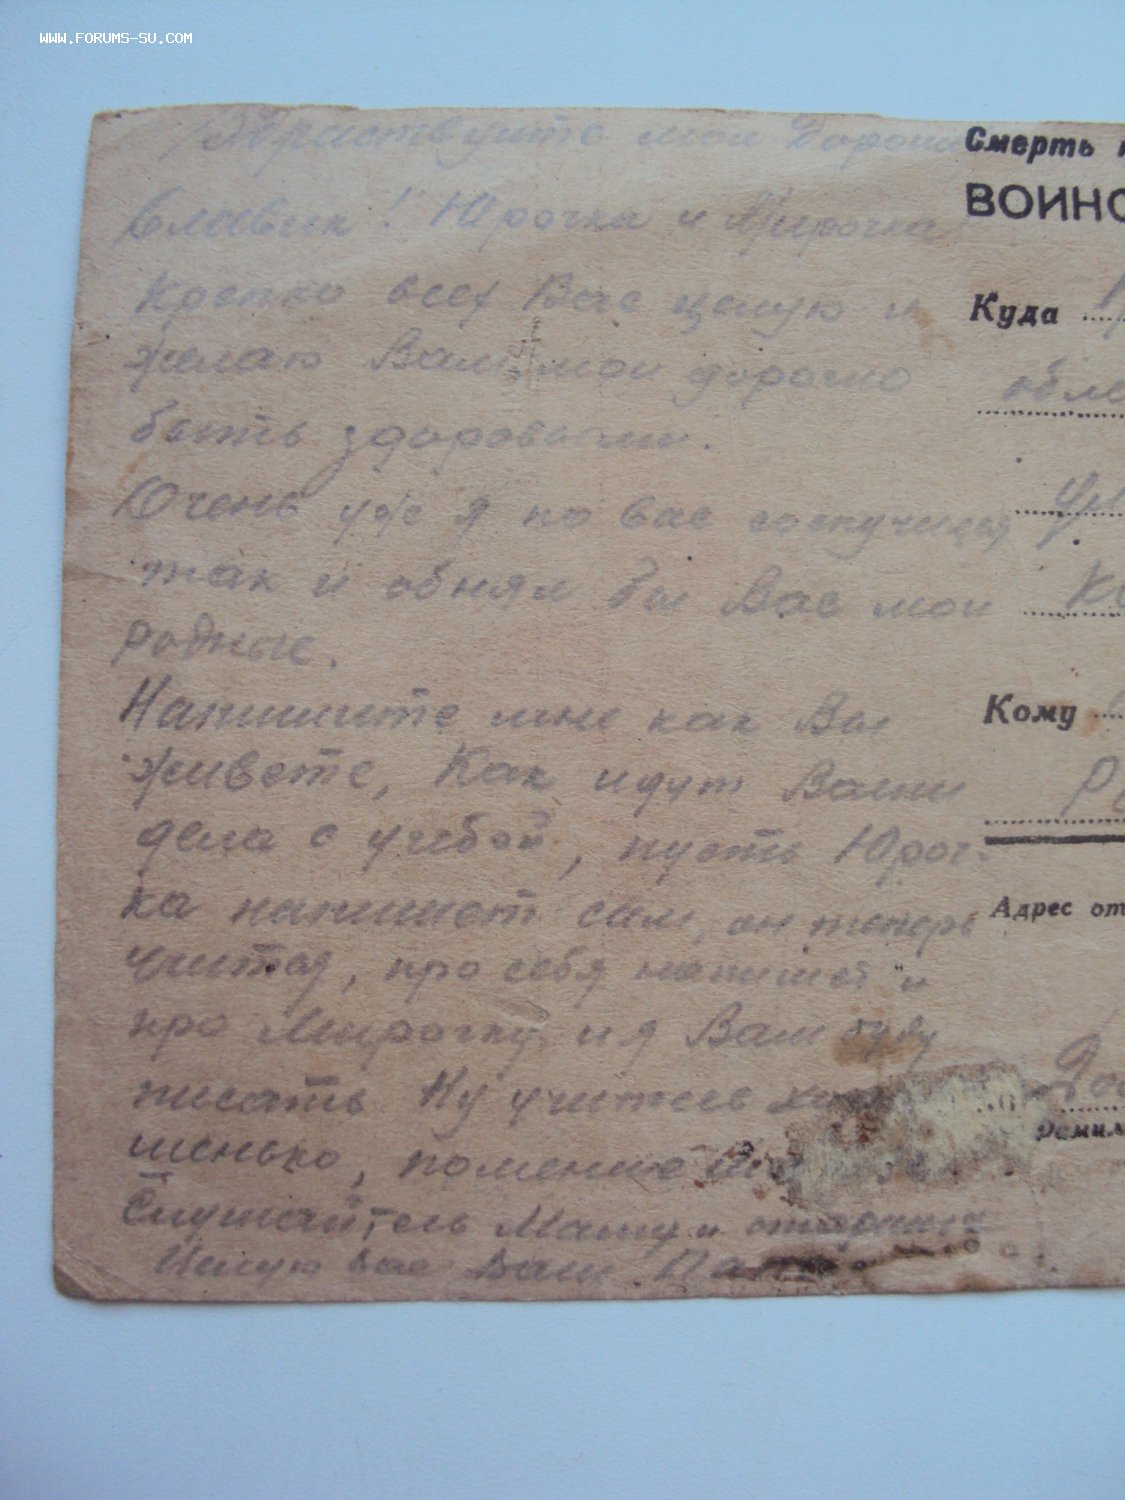 WWW.FORUMS-SU.COM
Здравствуйте мои дорогие
Славик! Юрочка и Мирочка
Крепко всех Вас целую и
желаю Вам мои дорогие
быть здоровыми.
Очень уже я по вас соскучился
так и обнял бы Вас мои
родные.
Напишите мне как Вы
живете, Как идут Ваши
дела с учебой, пусть Юроч-
ка напишет сам, он теперь
учится, про себя напишет и
про Мирочку, и я Вам буду
писать Ну учитесь
шенько,
Слушайтесь Маму и
Целую вас Ваш Папа
Смерть
ВОИНС
Куда
обла
Кому
Адрес от
Фамил